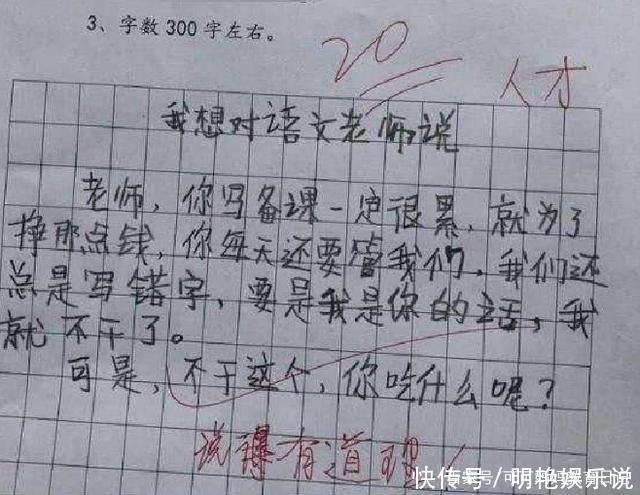 3、字数300字左右。
20
人才
我想对语文老师说
老师，你写备课一定很累，就为了
挣那点钱，你每天还要管我们，我们还
总是写错字，要是我是你的话，我
就不干了。
可是，不干这个，你吃什么呢？
说得有道理！
快传号／明艳娱乐说